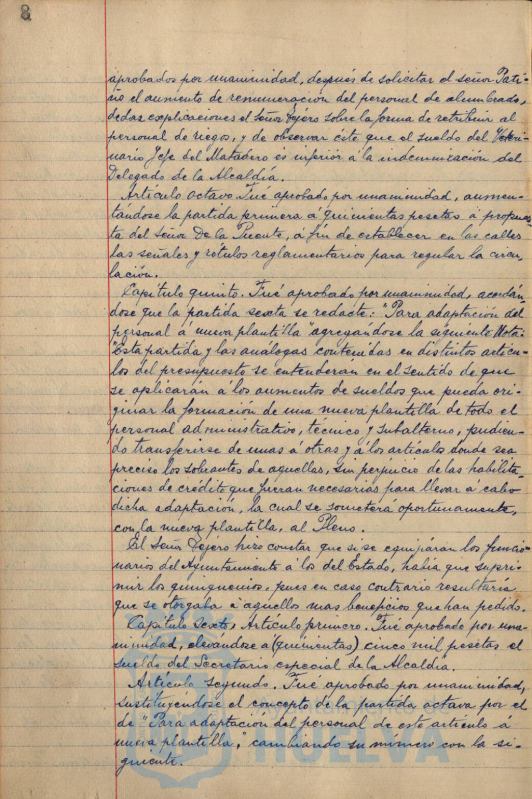 8
aprobados por unaminidad, después de solicitar el señor Pati-
ño el aumento de remuneración del personal de alumbrado,
dedar explicaciones el Señor Tejero sobre la forma de retribuir al
personal de riegos, y de observar éste que el sueldo del Veteri-
nario Jefe del Matadero es inferior á la indemnización del
Delegado de la Alcaldía.
Artículo octavo. Fué aprobado por unaminidad, aumen-
tándose la partida primera á quinientas pesetas á propues-
ta del Señor De la Puente, á fin de establecer en las calles
las señales y rótulos reglamentarios para regular la circu-
lación.
Capítulo quinto. Fué aprobado por unaminidad, acordán-
dose que la partida sexta se redacte: Para adaptación del
personal á nueva plantilla agregándose la siguiente Nota:
"Esta partida y las análogas contenidas en distintos artícu-
los del presupuesto se entenderán en el sentido de que
se aplicarán á los aumentos de sueldos que pueda ori-
ginar la formación de una nueva plantilla de todo el
personal administrativo, técnico y subalterno, pudien-
do transferirse de unas á otras y á los artículos donde sea
preciso los sobrantes de aquellas, sin perjuicio de las habilita-
ciones de crédito que fueran necesarias para llevar á cabo
dicha adaptación, la cual se someterá oportunamente,
con la nueva plantilla, al Pleno.
El Señor Tejero hizo constar que si se equiparan los funcio-
narios del Ayuntamiento á los del Estado, habia que supri-
mir los quinquenios, pues en caso contrario resultaría
que se otorgaba á aquellos mas beneficios que han pedido.
Capítulo sexto. Artículo primero. Fué aprobado por una-
minidad, elevandose á (quinientas) cinco mil pesetas el
sueldo del Secretario especial de la Alcaldía.
Artículo segundo. Fué aprobado por unaminidad,
sustituyéndose el concepto de la partida octava por el
de "Para adaptación del personal de este artículo á
nueva plantilla," cambiando su número con la si-
guiente.
HUELVA